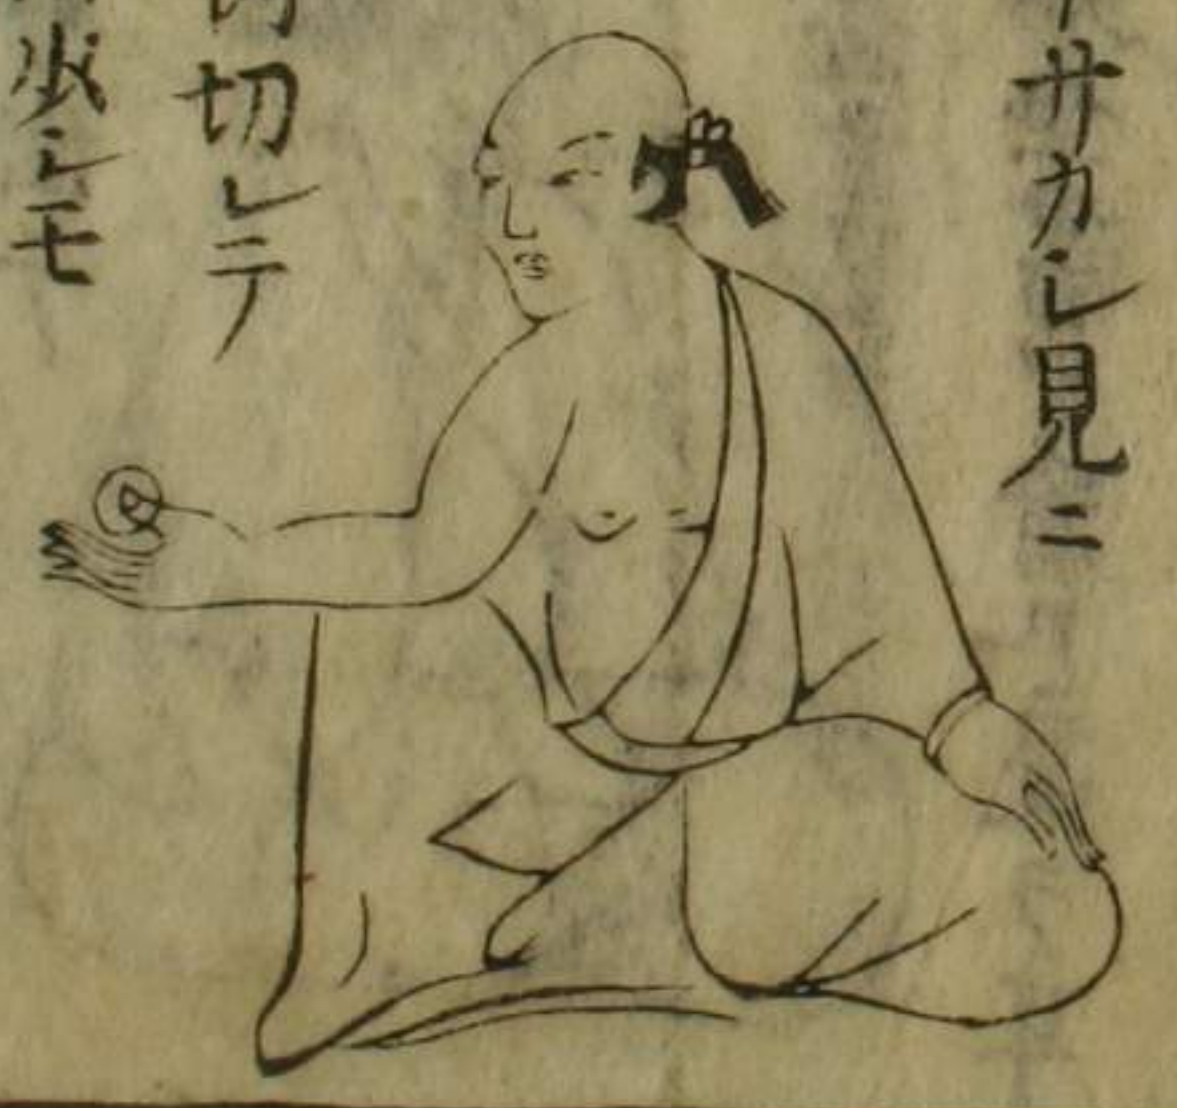 サカレ見ニ
切レテ
少シモ